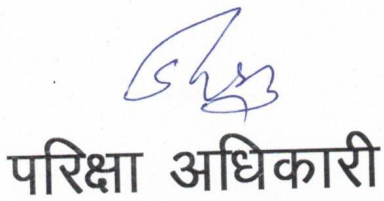 परिक्षा अधिकारी